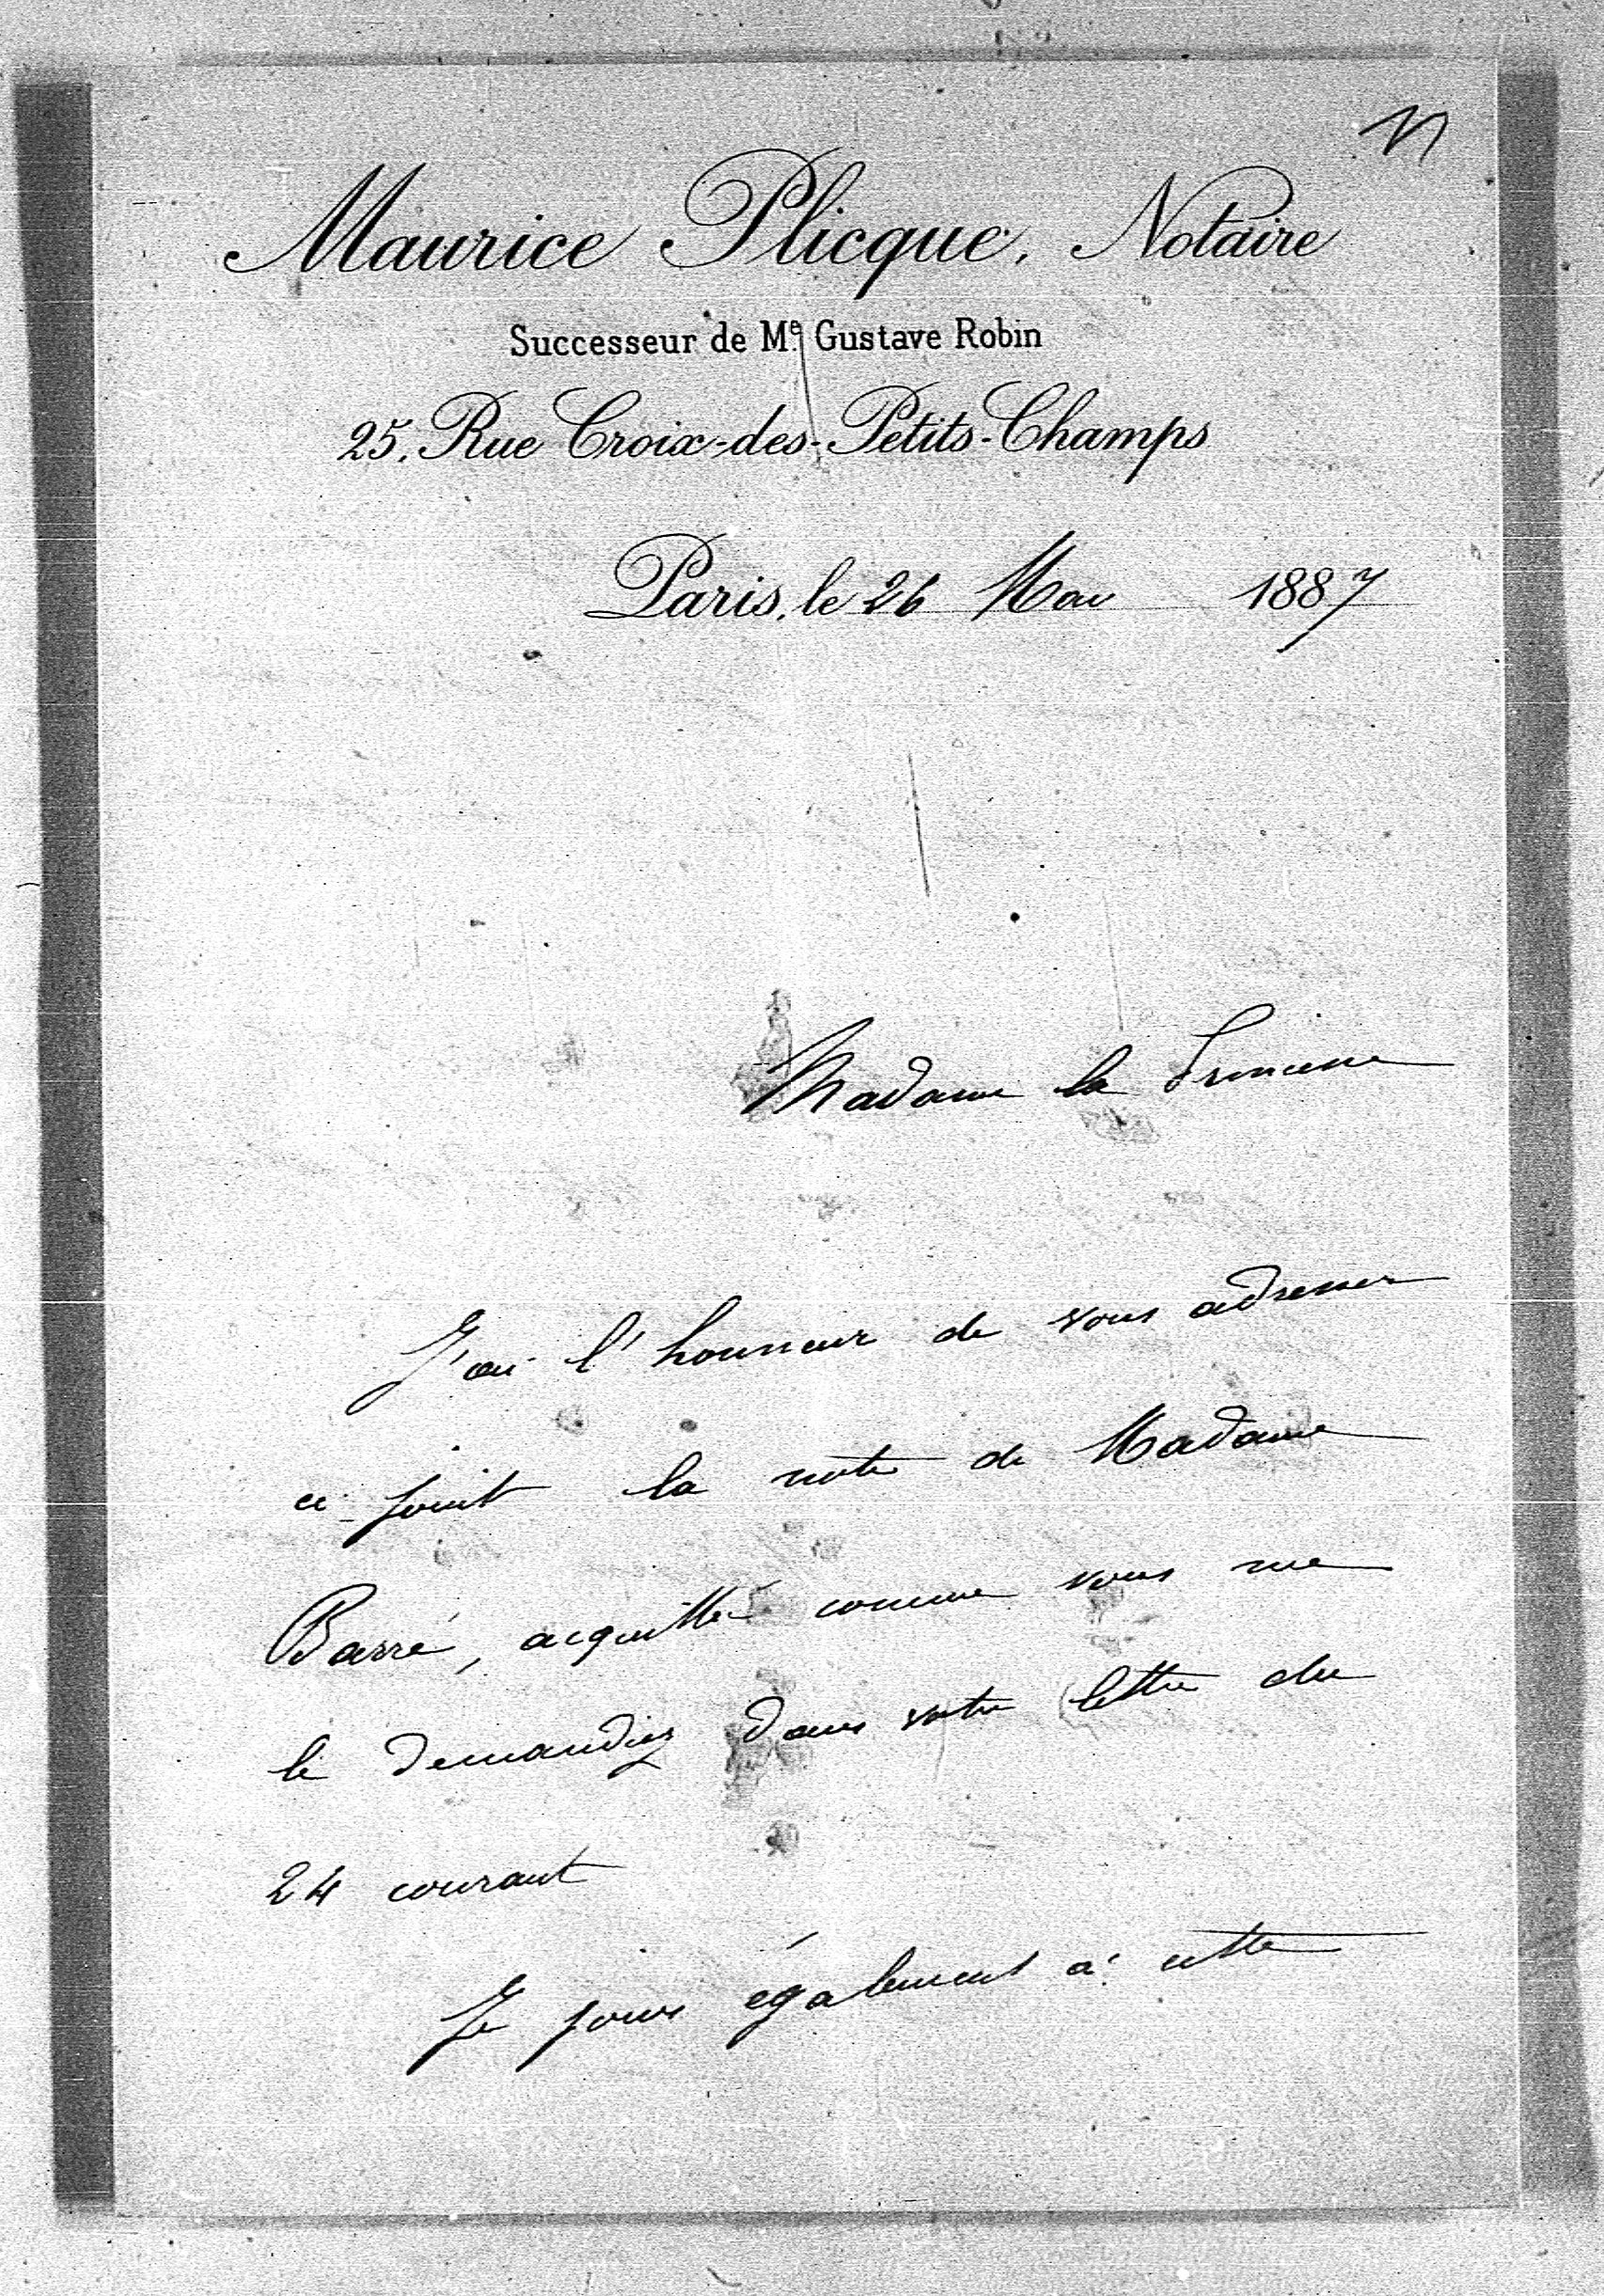 Maurice Plicque, Notaire
Successeur de Me. Gustave Robin
25, Rue Croix-des-Petits-Champs
Paris, le 26 Mai 1887
Madame la Princesse
J'ai l'honneur de vous adresser
ci-joint la note de Madame
Barré, acquittée comme vous me
le demandiez dans votre lettre du
24 courant
Je joins également à cette